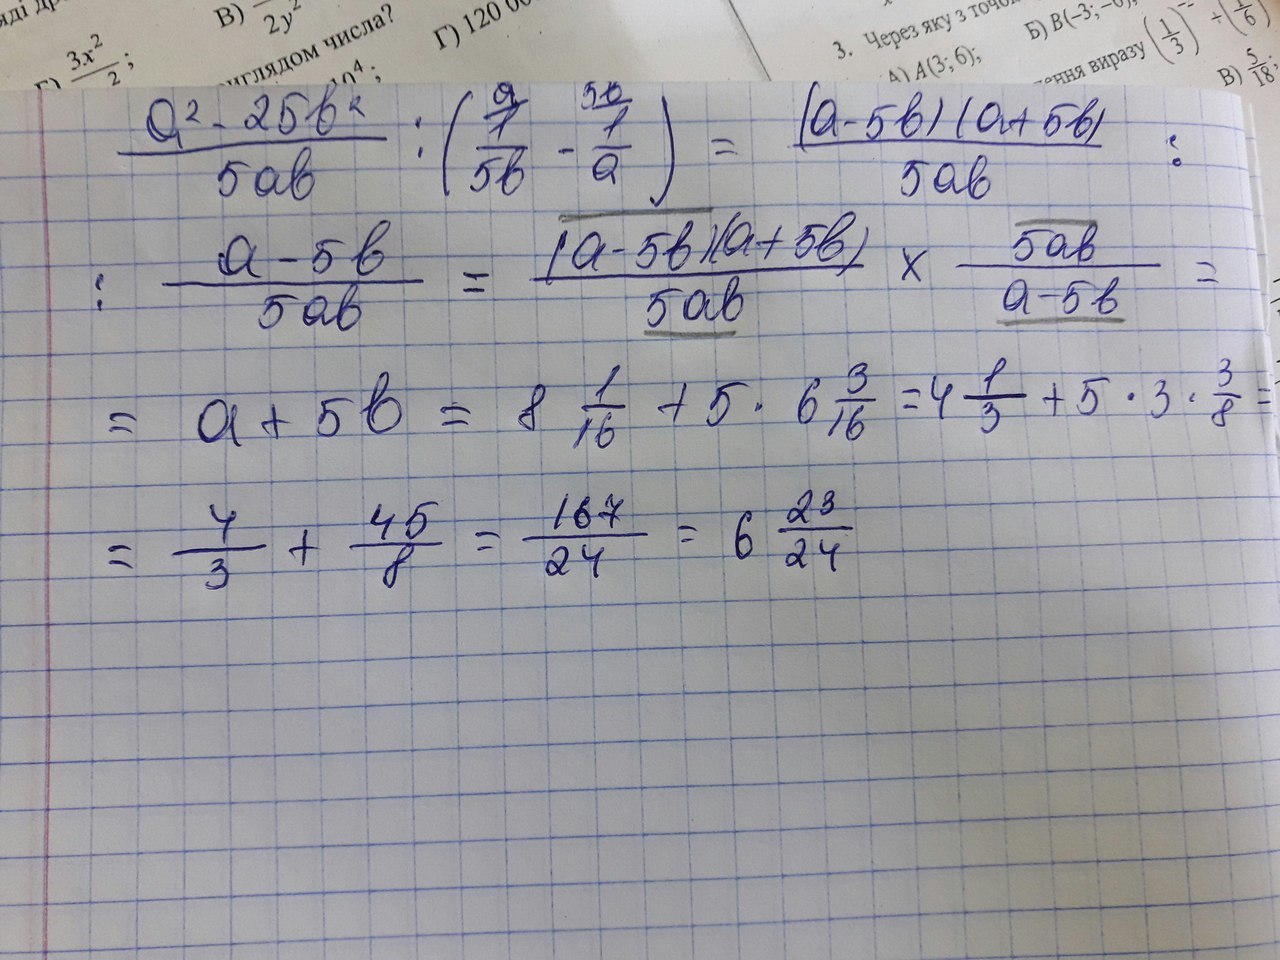 В)
2y²
Г) 120 0
3x²
2 ;
иглядом числа?
10⁴;
3. Через яку з точо
А) A(3; 6);
Б) B(−3; −6)
ення виразу (1/3)⁻ + (1/6)
В) 5/18;
(a² - 25b²)/(5ab) : (1/(5b) - 1/a) = ((a-5b)(a+5b))/(5ab) :
: (a-5b)/(5ab) = ((a-5b)(a+5b))/(5ab) × (5ab)/(a-5b) =
= a + 5b = 8 1/16 + 5 · 6 3/16 = 4 1/3 + 5 · 3 · 3/8 =
= 4/3 + 45/8 = 167/24 = 6 23/24